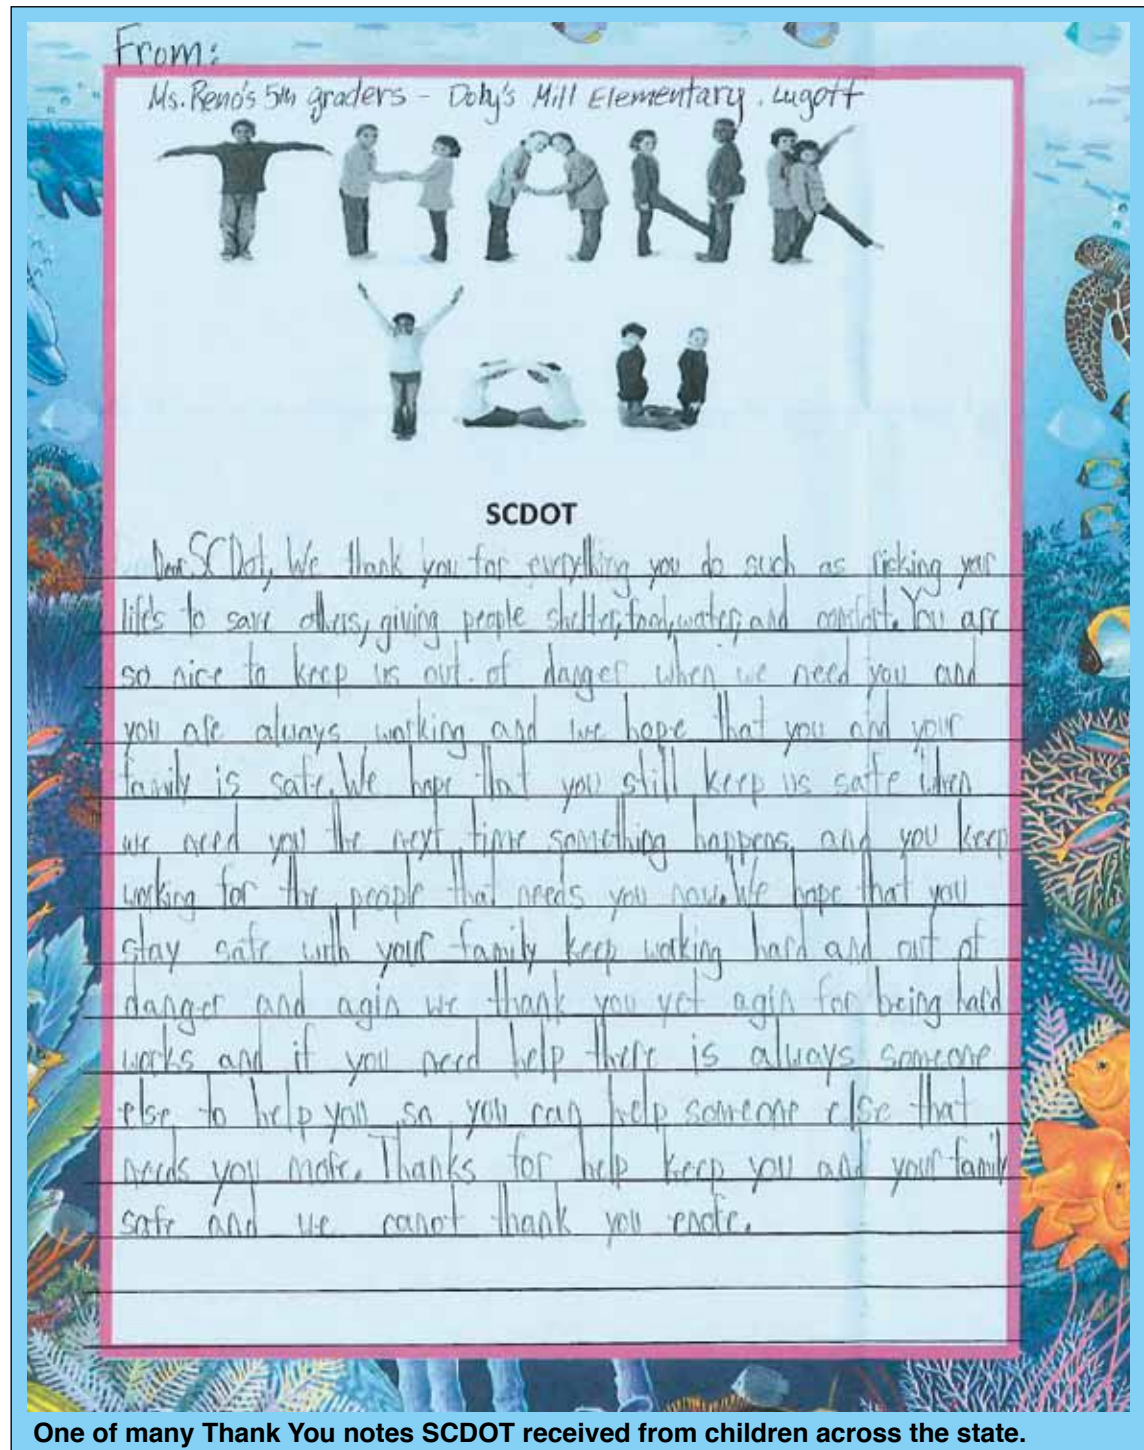 From:
Ms. Reno's 5th graders - Doby's Mill Elementary. Lugoff
THANK
YOU
SCDOT
Dear SCDot, We thank you for everything you do such as risking your
life's to save others, giving people shelter, food, water, and comfort. You are
so nice to keep us out of danger when we need you and
you are always working and we hope that you and your
family is safe. We hope that you still keep us safe when
we need you the next time something happens, and you keep
working for the people that needs you now. We hope that you
stay safe with your family keep working hard and out of
danger and agin we thank you yet agin for being hard
works and if you need help there is always someone
else to help you so you can help someone else that
needs you more. Thanks for help keep you and your family
safe and we canot thank you enofe.
One of many Thank You notes SCDOT received from children across the state.